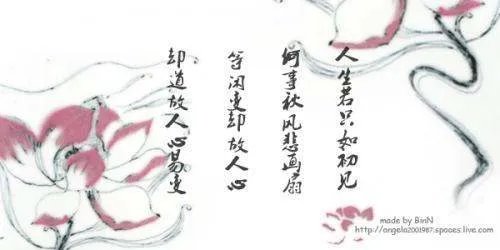 人生若只如初见
何事秋风悲画扇
等闲变却故人心
却道故人心易变
made by BinN
http://angela2001987.spaces.live.com